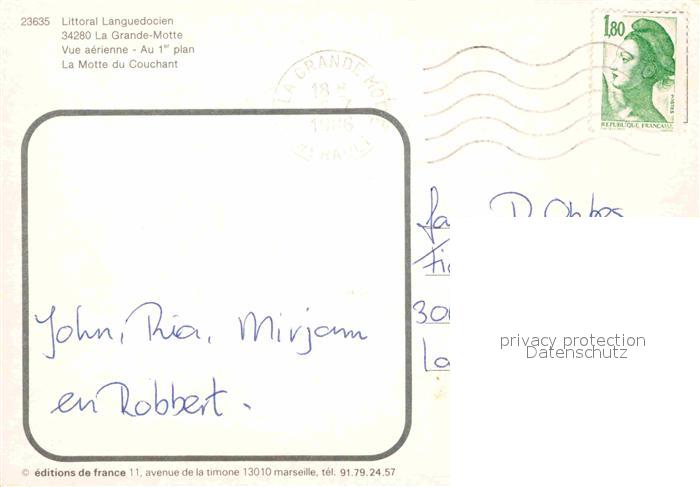 23635 Littoral Languedocien
34280 La Grande-Motte
Vue aérienne - Au 1er plan
La Motte du Couchant
LA GRANDE MOTTE
18 H
1986
HERAULT
1,80
POSTES
REPUBLIQUE FRANÇAISE
John, Ria, Mirjam
en Robbert.
privacy protection
Datenschutz
© éditions de france 11, avenue de la timone 13010 marseille, tél. 91.79.24.57